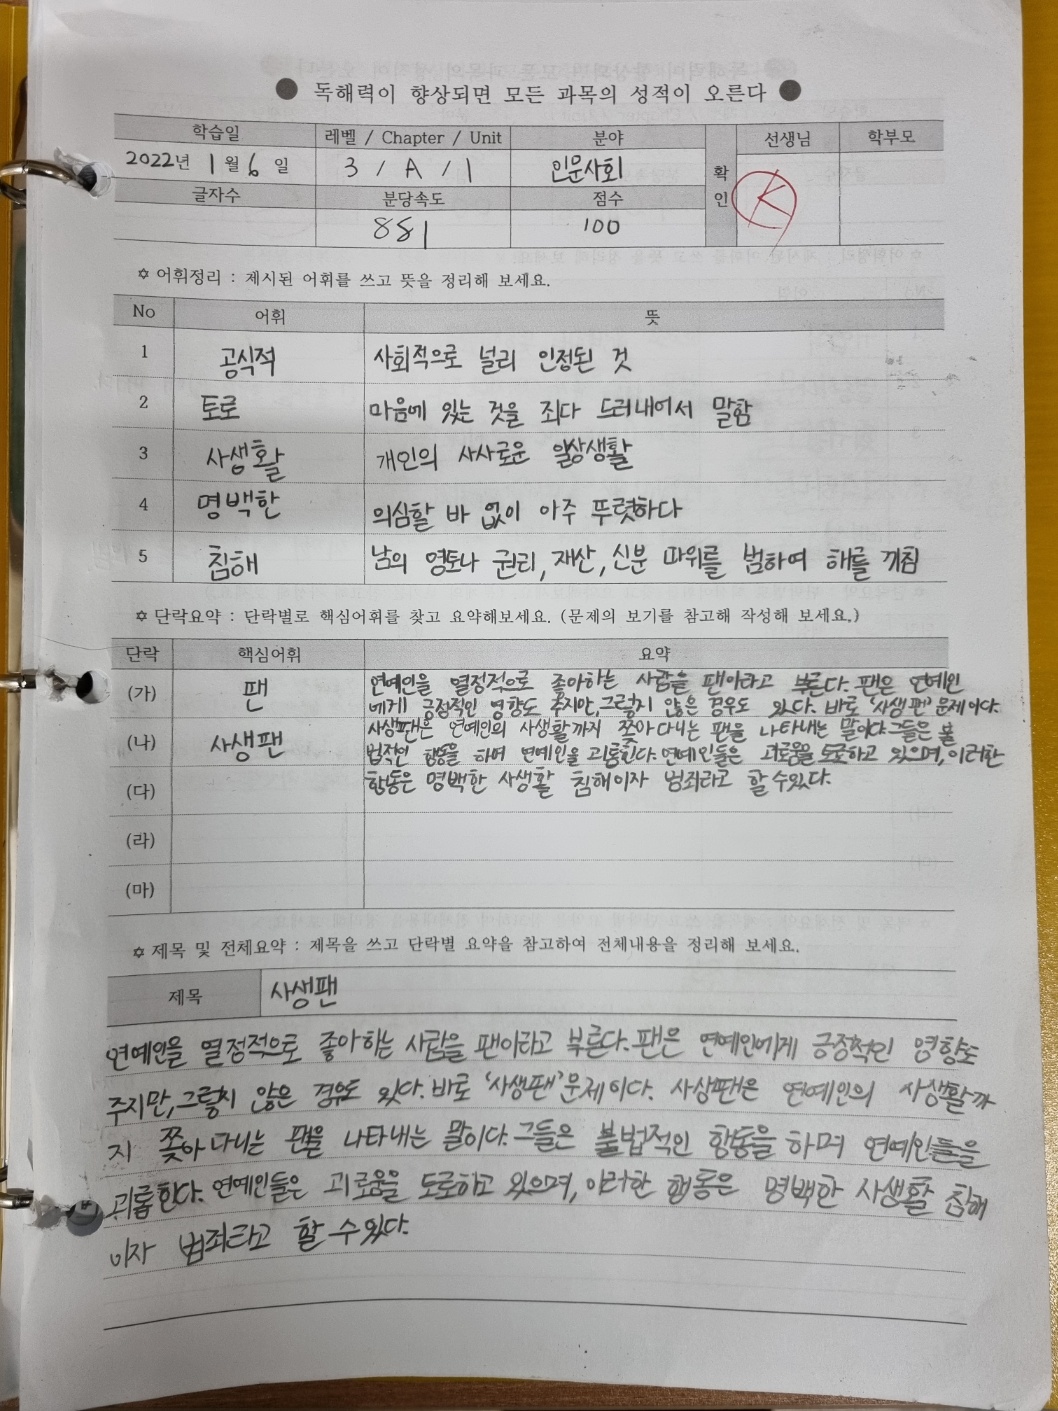 ● 독해력이 향상되면 모든 과목의 성적이 오른다 ●
학습일 레벨 / Chapter / Unit 분야 확인 선생님 학부모
2022년 1월 6일 3 / A / 1 인문사회
글자수 분당속도 점수
881 100
✡ 어휘정리 : 제시된 어휘를 쓰고 뜻을 정리해 보세요.
No 어휘 뜻
1 공식적 사회적으로 널리 인정된 것
2 토로 마음에 있는 것을 죄다 드러내어서 말함
3 사생활 개인의 사사로운 일상생활
4 명백한 의심할 바 없이 아주 뚜렷하다
5 침해 남의 영토나 권리, 재산, 신분 따위를 범하여 해를 끼침
✡ 단락요약 : 단락별로 핵심어휘를 찾고 요약해보세요. (문제의 보기를 참고해 작성해 보세요.)
단락 핵심어휘 요약
(가) 팬 연예인을 열정적으로 좋아하는 사람을 팬이라고 부른다. 팬은 연예인
에게 긍정적인 영향도 주지만, 그렇지 않은 경우도 있다. 바로 '사생팬' 문제이다.
(나) 사생팬 사생팬은 연예인의 사생활까지 쫓아다니는 팬을 나타내는 말이다. 그들은 불
법적인 행동을 하며 연예인을 괴롭힌다. 연예인들은 괴로움을 토로하고 있으며, 이러한
(다) 행동은 명백한 사생활 침해이자 범죄라고 할 수 있다.
(라)
(마)
✡ 제목 및 전체요약 : 제목을 쓰고 단락별 요약을 참고하여 전체내용을 정리해 보세요.
제목 사생팬
연예인을 열정적으로 좋아하는 사람을 팬이라고 부른다. 팬은 연예인에게 긍정적인 영향도
주지만, 그렇지 않은 경우도 있다. 바로 '사생팬' 문제이다. 사생팬은 연예인의 사생활까
지 쫓아다니는 팬을 나타내는 말이다. 그들은 불법적인 행동을 하며 연예인들을
괴롭힌다. 연예인들은 괴로움을 토로하고 있으며, 이러한 행동은 명백한 사생활 침해
이자 범죄라고 할 수 있다.